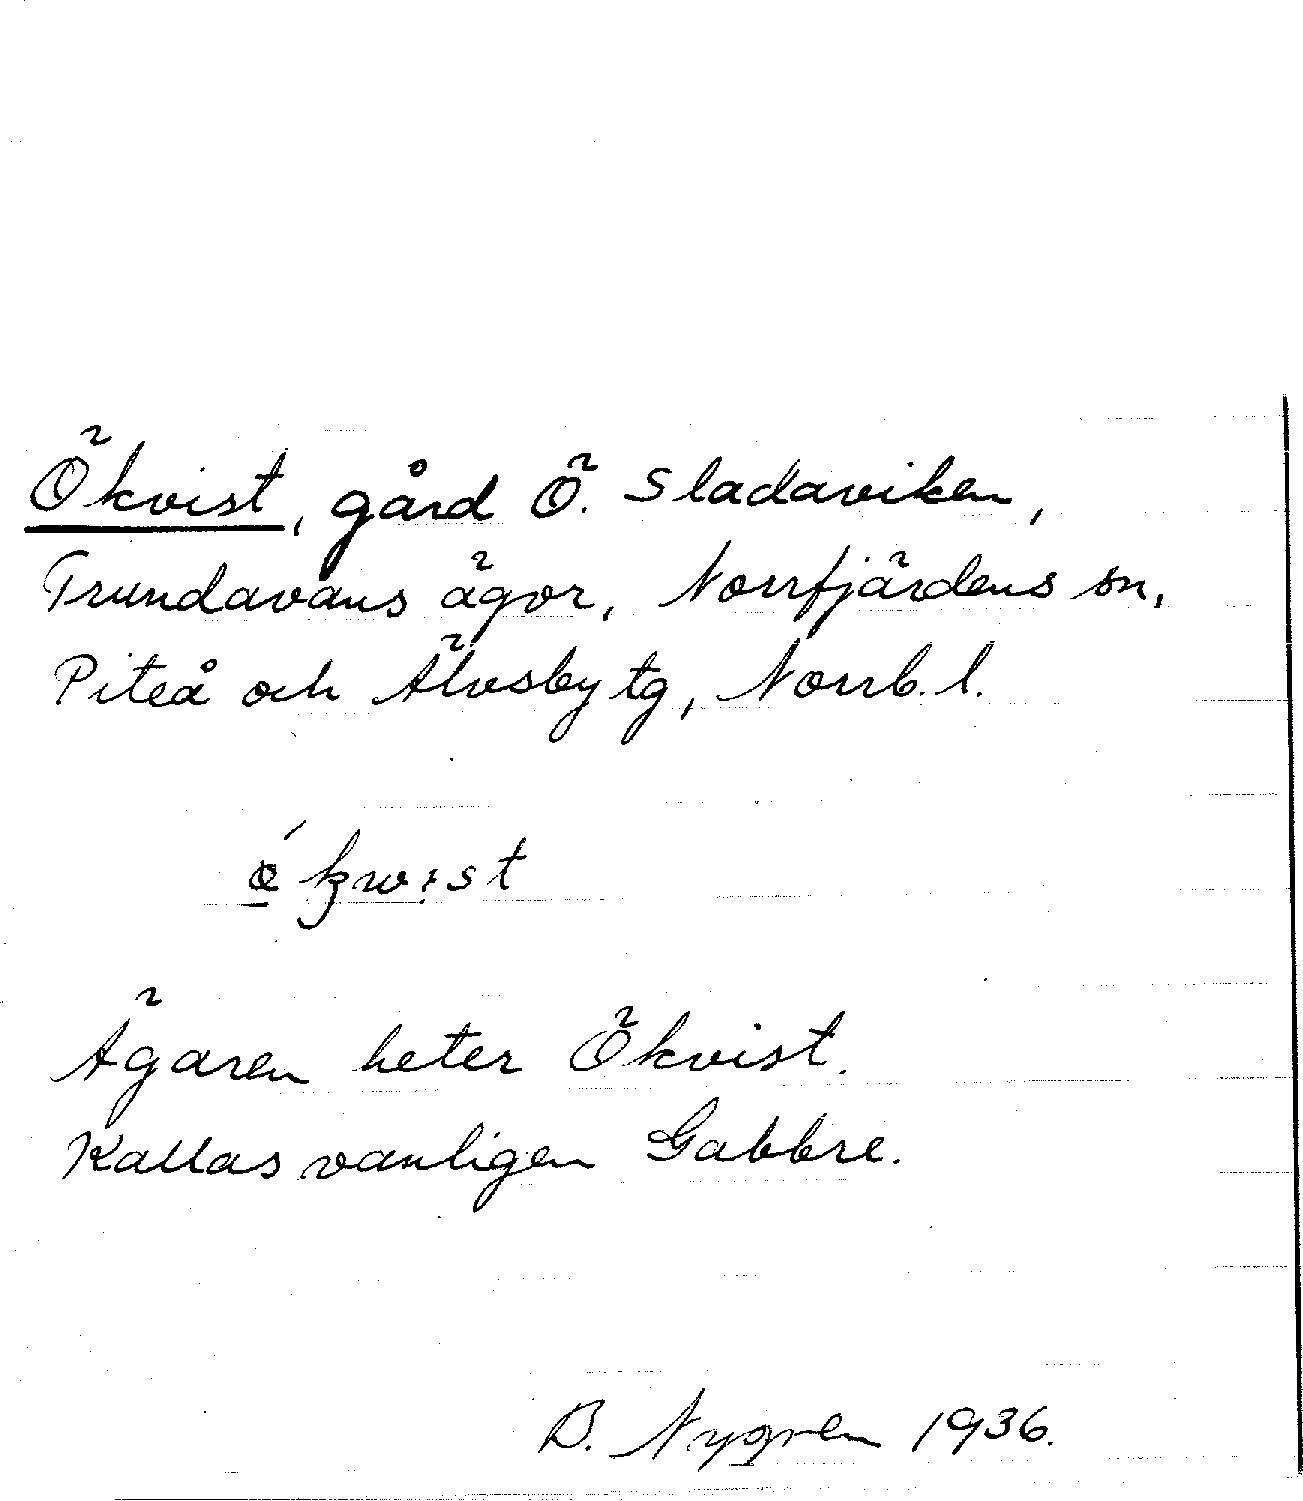 Ökvist, gård Ö. Sladaviken,
Trundavans ägor, Norrfjärdens sn,
Piteå och Älvsby tg, Norrb. l.
Ägaren heter Ökvist.
Kallas vanligen Gabbre.
B. Nygren 1936.